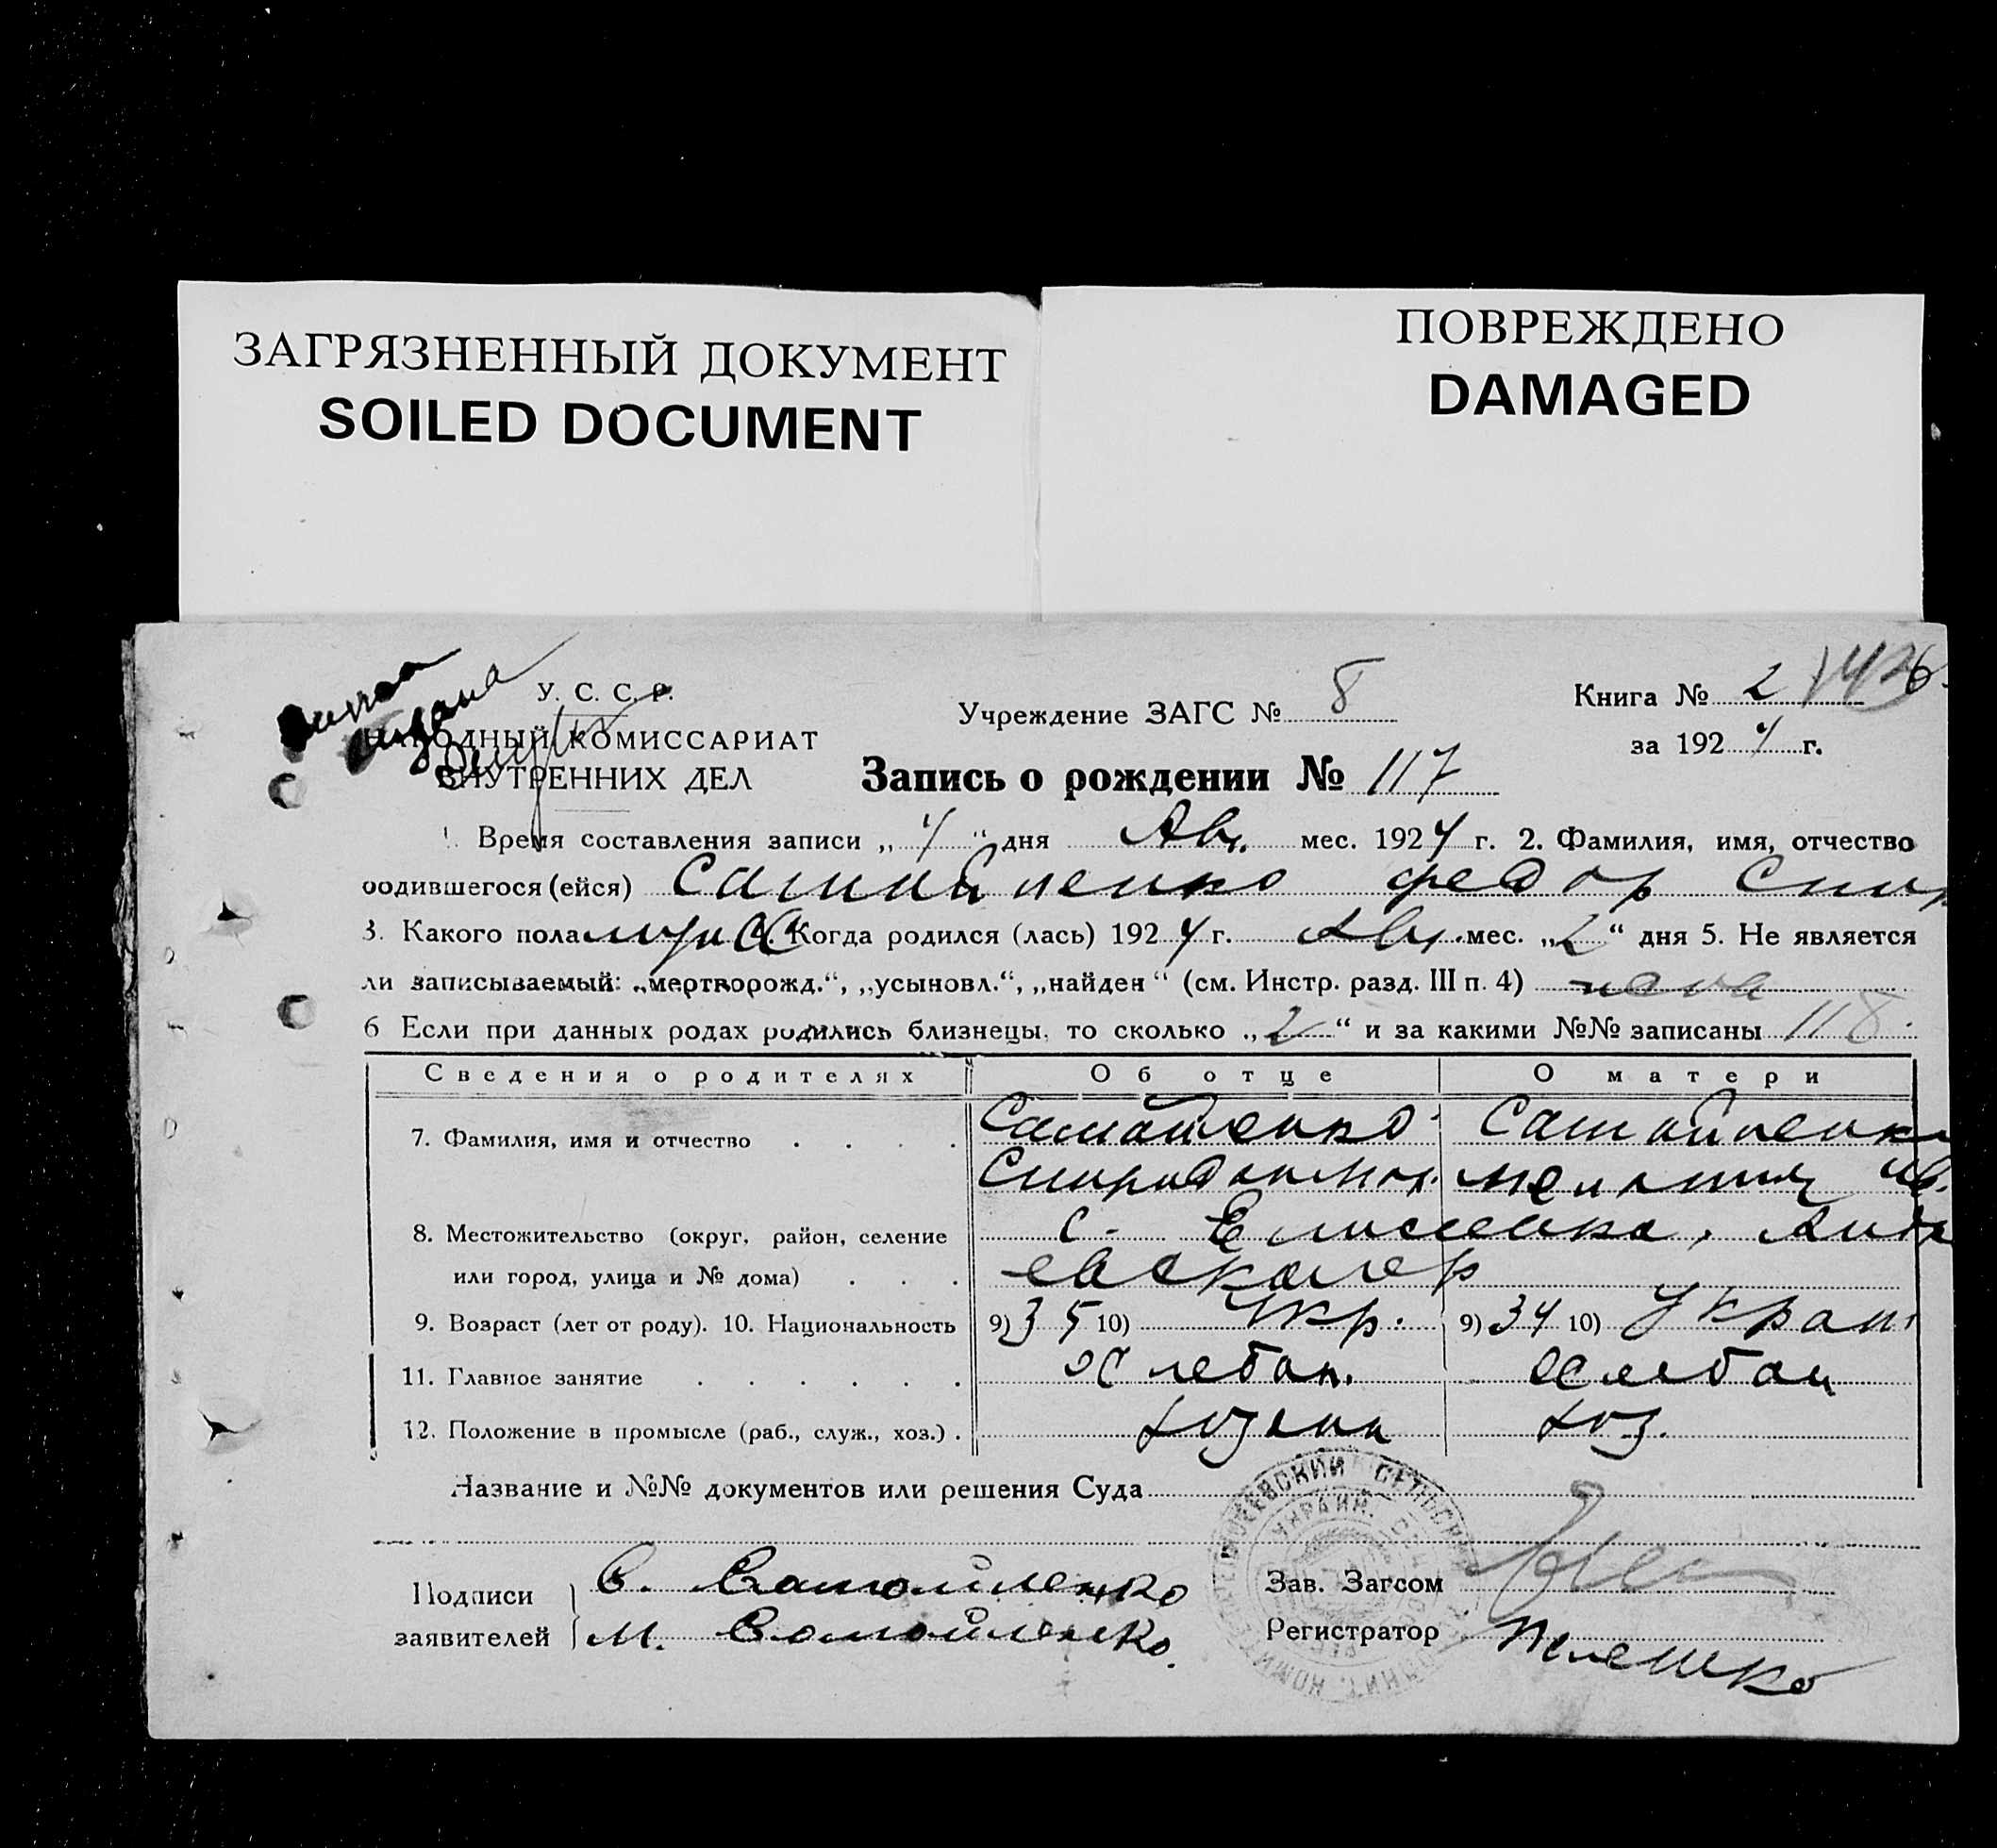 ЗАГРЯЗНЕННЫЙ ДОКУМЕНТ
SOILED DOCUMENT
ПОВРЕЖДЕНО
DAMAGED
У. С. С. Р.
НАРОДНЫЙ КОМИССАРИАТ
ВНУТРЕННИХ ДЕЛ
Учреждение ЗАГС № 8
Книга № 2
за 1924 г.
Запись о рождении № 117
1. Время составления записи „4“ дня Авг. мес. 1924 г. 2. Фамилия, имя, отчество
родившегося (ейся) Самойленко Федор Спир
3. Какого пола 4. Когда родился (лась) 1924 г. Авг. мес. „2“ дня 5. Не является
ли записываемый: „мертворожд.“, „усыновл.“, „найден“ (см. Инстр. разд. III п. 4)
6 Если при данных родах родились близнецы, то сколько „2“ и за какими №№ записаны 118.
Сведения о родителях Об отце О матери
7. Фамилия, имя и отчество Самойленко Самойленко
Спиридон
8. Местожительство (округ, район, селение с.
или город, улица и № дома)
9. Возраст (лет от роду). 10. Национальность 9) 35 10) Укр. 9) 34 10) Украин
11. Главное занятие Хлебоп. Хлебоп
12. Положение в промысле (раб., служ., хоз.) хозяин хоз.
Название и №№ документов или решения Суда
Подписи С. Самойленко
заявителей М. Самойленко.
Зав. Загсом
Регистратор